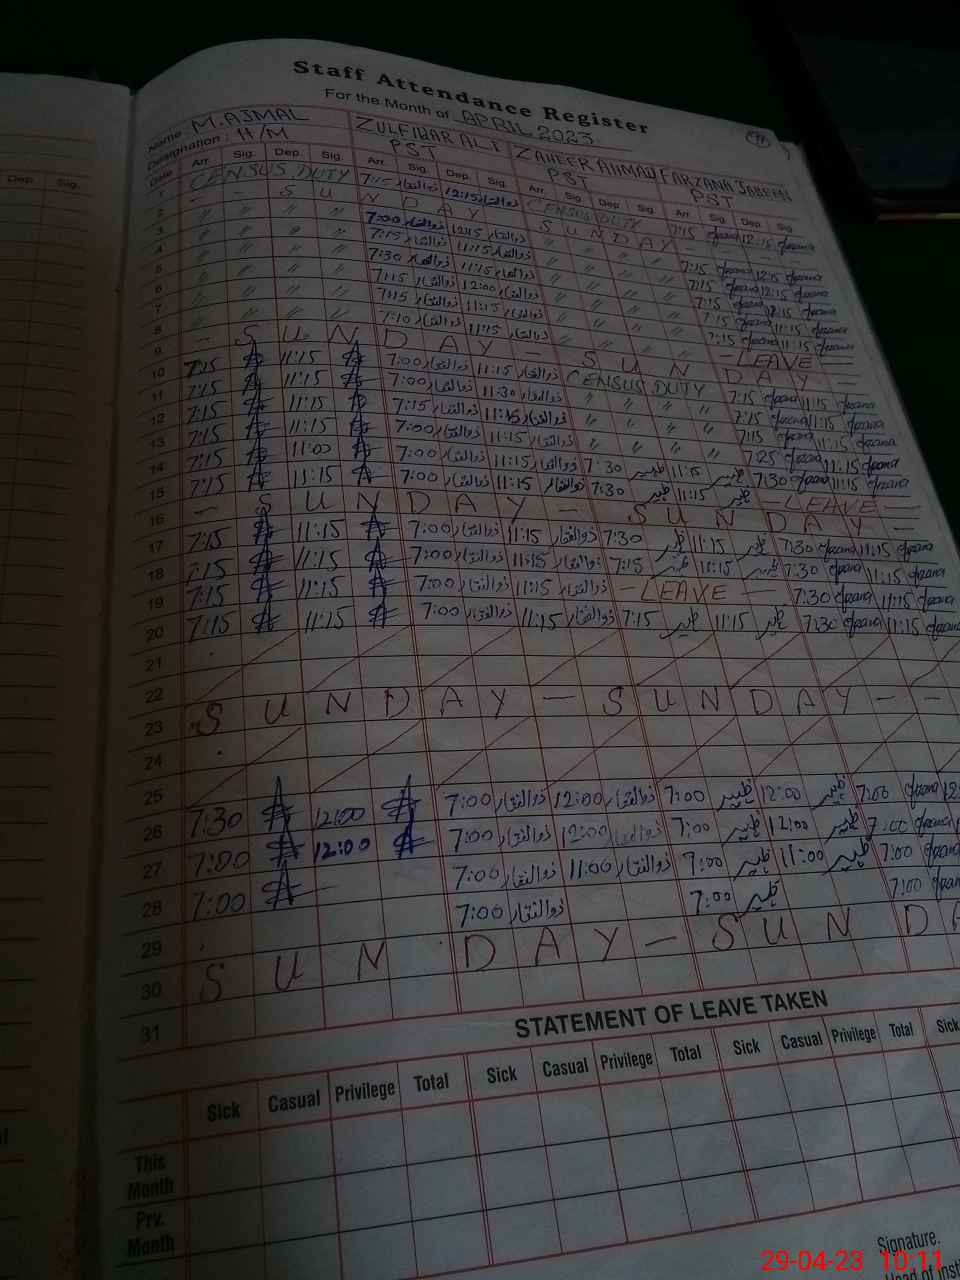 Staff Attendance Register
For the Month of APRIL 2023
Name : M. AJMAL ZULFIQAR ALI ZAHEER AHMAD FARZANA JABEEN
Designation : H/M PST PST PST
Date Arr. Sig. Dep. Sig. Arr. Sig. Dep. Sig. Arr. Sig. Dep. Sig. Arr. Sig. Dep. Sig.
Dep. Sig.
1 CENSUS DUTY 7:15 ذوالفقار 12:15 ذوالفقار CENSUS DUTY 7:15 12:15
2 - - S U N D A Y - S U N D A Y -
3 〃 〃 〃 〃 7:00 ذوالفقار 12:15 ذوالفقار 〃 〃 〃 〃 7:15 12:15
4 〃 〃 〃 〃 7:15 ذوالفقار 11:15 ذوالفقار 〃 〃 〃 〃 7:15 12:15
5 〃 〃 〃 〃 7:30 ذوالفقار 11:15 ذوالفقار 〃 〃 〃 〃 7:15 12:15
6 〃 〃 〃 〃 7:15 ذوالفقار 12:00 ذوالفقار 〃 〃 〃 〃 7:15 11:15
7 〃 〃 〃 〃 7:15 ذوالفقار 11:15 ذوالفقار 〃 〃 〃 〃 7:15 11:15
8 〃 〃 〃 〃 7:10 ذوالفقار 11:15 ذوالفقار 〃 〃 〃 〃 - LEAVE -
9 - S U N D A Y - S U N D A Y -
10 7:15 11:15 7:00 ذوالفقار 11:15 ذوالفقار CENSUS DUTY 7:15 11:15
11 7:15 11:15 7:00 ذوالفقار 11:30 ذوالفقار 〃 〃 〃 〃 7:15 11:15
12 7:15 11:15 7:15 ذوالفقار 11:15 ذوالفقار 〃 〃 〃 〃 7:15 11:15
13 7:15 11:15 7:00 ذوالفقار 11:15 ذوالفقار 〃 〃 〃 〃 7:25 11:15
14 7:15 11:00 7:00 ذوالفقار 11:15 ذوالفقار 7:30 ظہیر 11:15 ظہیر 7:30 11:15
15 7:15 11:15 7:00 ذوالفقار 11:15 ذوالفقار 7:30 ظہیر 11:15 ظہیر - LEAVE -
16 - S U N D A Y - S U N D A Y -
17 7:15 11:15 7:00 ذوالفقار 11:15 ذوالفقار 7:30 ظہیر 11:15 ظہیر 7:30 11:15
18 7:15 11:15 7:00 ذوالفقار 11:15 ذوالفقار 7:15 ظہیر 11:15 ظہیر 7:30 11:15
19 7:15 11:15 7:00 ذوالفقار 11:15 ذوالفقار - LEAVE - 7:30 11:15
20 7:15 11:15 7:00 ذوالفقار 11:15 ذوالفقار 7:15 ظہیر 11:15 ظہیر 7:30 11:15
21
22
23 S U N D A Y - S U N D A Y - -
24
25
26 7:30 12:00 7:00 ذوالفقار 12:00 ذوالفقار 7:00 ظہیر 12:00 ظہیر 7:00
27 7:00 12:00 7:00 ذوالفقار 12:00 ذوالفقار 7:00 ظہیر 12:00 ظہیر 7:00
28 7:00 7:00 ذوالفقار 11:00 ذوالفقار 7:00 ظہیر 11:00 ظہیر 7:00
29 7:00 ذوالفقار 7:00 ظہیر 7:00
30 S U N D A Y - S U N D A
31
STATEMENT OF LEAVE TAKEN
Sick Casual Privilege Total Sick Casual Privilege Total Sick Casual Privilege Total Sick
This Month
Prv. Month
Signature.
Head of Inst
29-04-23 10:11